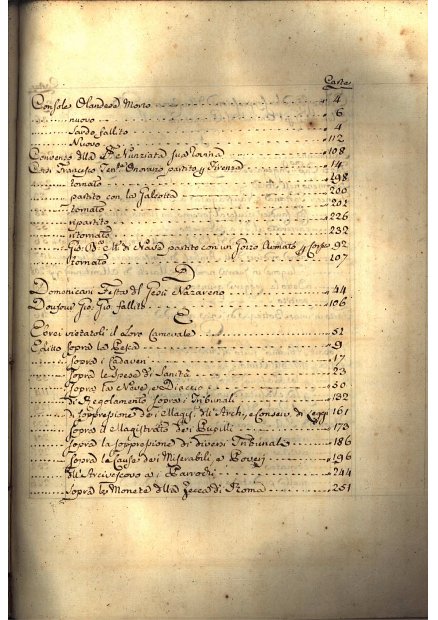 Carta
Console Olandese Morto 4
nuovo 6
Sardo fallito 4
Nuovo 112
Convento della SS. Nunziata sua 108
Cap. Francesco Ten.te Onorario partito p Firenza 14
tornato 198
partito con la Galeotta 200
tornato 201
ripartito 226
ritornato 232
Gio. di Nava partito con un Goizo Armato p Corso 92
tornato 107
D
Domenicani Festa di Gesù Nazareno 44
Gio. Gio. fallito 106
E
Ebrei vietatoli il Loro Carnevale 51
Editto sopra la Pesca 9
sopra i Cadaveri 17
sopra le Spese di Sanità 23
sopra la Neve, e Diaccio 50
di Regolamento sopra i Tribunali 132
di soppressione dei Magis. dell'Arch, e Conserv. di Leggi 161
sopra il Magistrato dei Pupilli 173
sopra la soppressione di diversi Tribunali 186
sopra le Cause dei Miserabili, e Poveri 196
dell'Arcivescovo a i Parrochi 244
sopra le Monete della Zecca di Roma 251